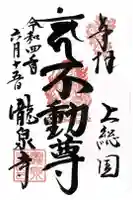 奉拝
上総国
不動尊
令和四年
六月十五日
龍泉寺